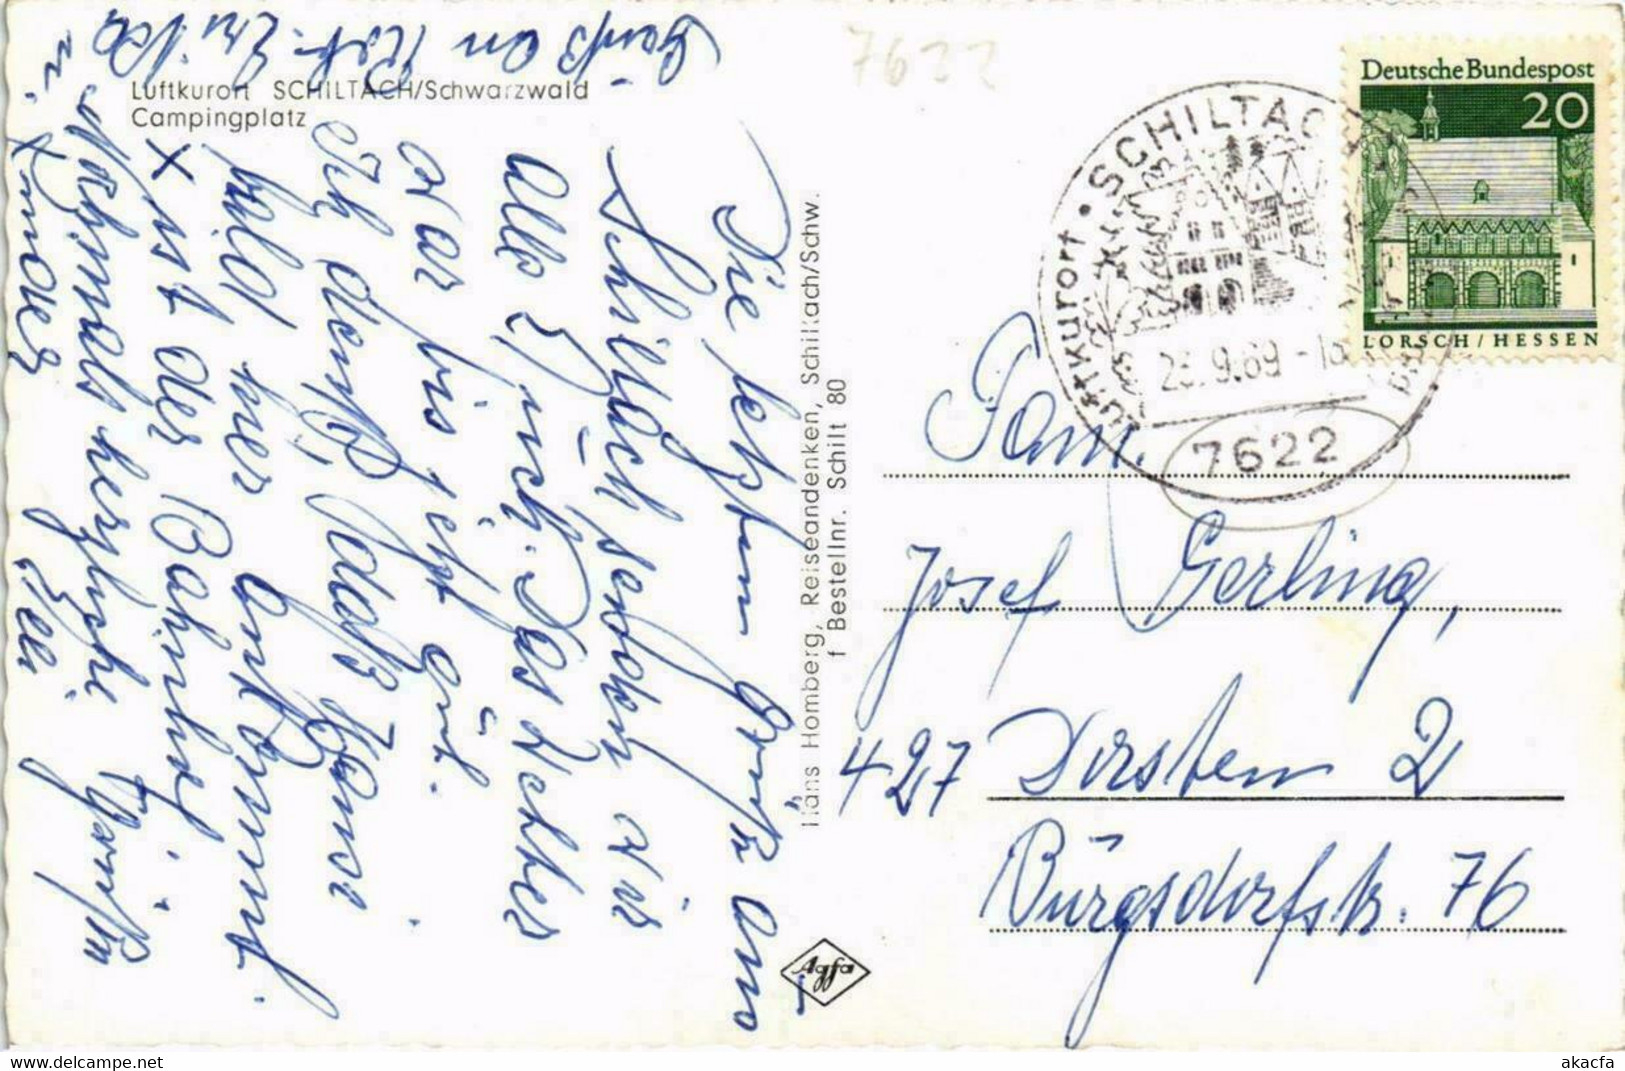 Luftkurort SCHILTACH/Schwarzwald
Campingplatz
Die letzten Grüße aus
Schiltach senden wir
alle Euch. Das Wetter
war bis jetzt gut.
Ich denke, daß Hansi
bald hier ankommt.
X ist der Bahnhof.
Nochmals herzliche Grüße
u. Kinder
Gruß an
Hans Homberg, Reiseandenken, Schiltach/Schw.
f Bestellnr. Schilt 80
Agfa
7622
Luftkurort • SCHILTACH
23.9.69-18
7622
Deutsche Bundespost
20
LORSCH/HESSEN
Fam.
Josef Gerling,
427 Dorsten 2
Burgsdorfstr. 76
akacfa